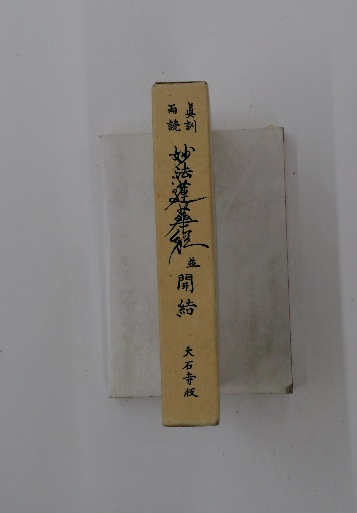 真訓
両読
妙法蓮華経
並
開結
大石寺版